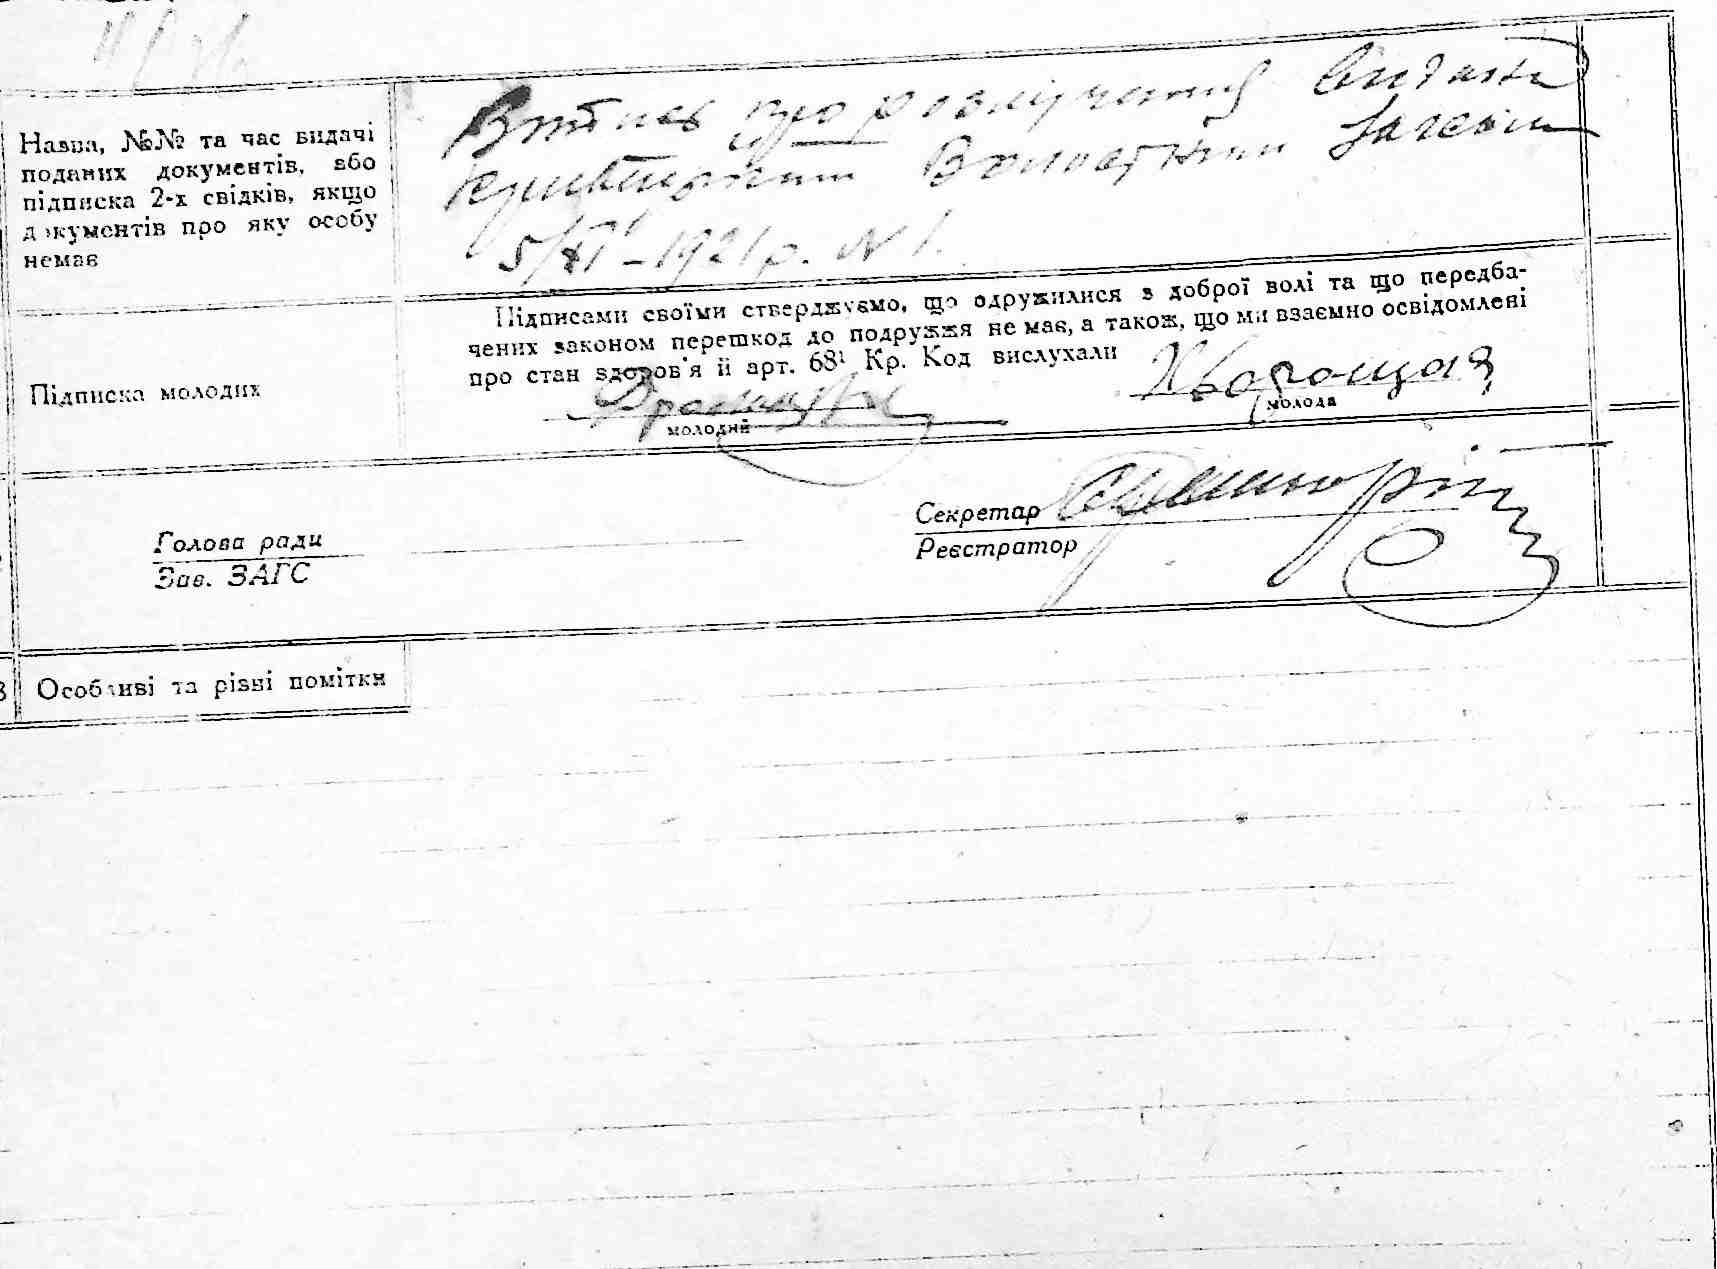 Назва, №№ та час видачі
поданих документів, або
підписка 2-х свідків, якщо
документів про яку особу
немає
про розлучення видана
Волостним Загсом
5/XI - 1921 р. N 1.
Підписка молодих
Підписами своїми стверджуємо, що одружилися з доброї волі та що передба-
чених законом перешкод до подружжя не має, а також, що ми взаємно освідомлені
про стан здоров'я й арт. 68¹ Кр. Код вислухали
молодий
молода
Голова ради
Зав. ЗАГС
Секретар
Реєстратор
8 Особливі та різні помітки